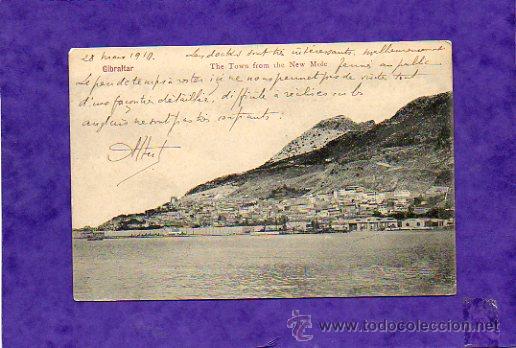 28 mars 1910. Les docks sont très intéressants, malheureusement
Gibraltar The Town from the New Mole fermé au public
Le peu de temps à rester ici ne nous permet pas de visiter tout
d'une façon détaillée, difficulté à réaliser car les
anglais ne sont pas très
Albert
© www.todocoleccion.net